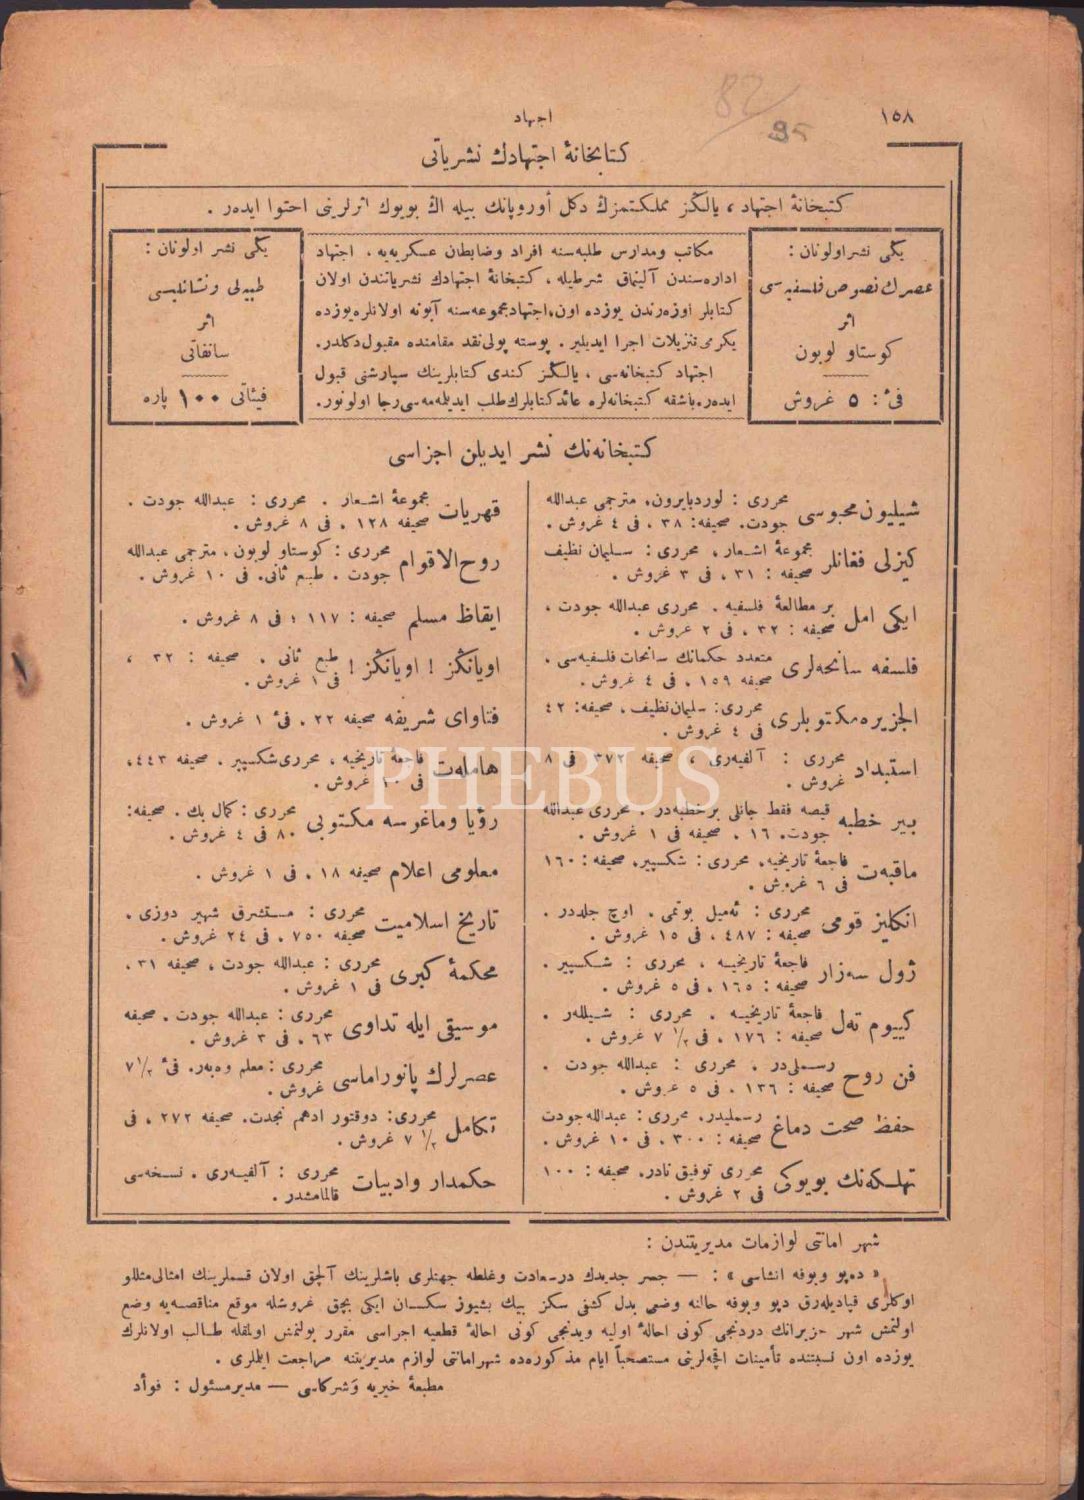 ١٥٨
اجتهاد
كتابخانهٔ اجتهادك نشرياتى
كتبخانهٔ اجتهاد ، يالڭز مملكتمزڭ دكل أوروپانك بيله اڭ بويوك اثرلرينى احتوا ايدهر .
يڭى نشر اولونان :
عصرك نصوص فلسفيه سى
اثر
كوستاو لوبون
فئ : ٥ غروش
مكاتب ومدارس طلبه سنه افراد وضابطان عسكريه يه ، اجتهاد
اداره سندن آلينماق شرطيله ، كتبخانهٔ اجتهادك نشرياتندن اولان
كتابلر اوزه رندن يوزده اون، اجتهاد مجموعه سنه آبونه اولانلره يوزده
يكرمى تنزيلات اجرا ايديلير . پوسته پولى نقد مقامنده مقبول دكلدر.
اجتهاد كتبخانه سى ، يالڭز كندى كتابلرينك سپارشنى قبول
ايدهر. باشقه كتبخانه لره عائد كتابلرك طلب ايديله مه سى رجا اولونور.
يڭى نشر اولونان :
اثر
فيئاتى ١٠٠ پاره
كتبخانه نك نشر ايديلن اجزاسى
شيليون محبوسى محررى : لورد بايرون، مترجمى عبدالله
جودت. صحيفه : ٣٨ ، فى ٤ غروش .
كيزلى فغانلر مجموعهٔ اشعار ، محررى : سليمان نظيف
صحيفه : ٣١ ، فى ٣ غروش .
ايكى امل بر مطالعهٔ فلسفيه . محررى عبدالله جودت ،
صحيفه : ٣٢ ، فى ٢ غروش .
فلسفه سانحه لرى متعدد حكمانك سانحات فلسفيه سى .
صحيفه ١٥٩ ، فى ٤ غروش .
الجزيره مكتوبلرى محررى : سليمان نظيف . صحيفه : ٤٢
فى ٤ غروش .
استبداد محررى : آلفيه رى ، صحيفه ٣٧٢ فى ٨
غروش .
بير خطبه قيصه فقط جانلى بر خطبه در . محررى عبدالله
جودت. ١٦ . صحيفه فى ١ غروش .
ماقبه ت فاجعهٔ تاريخيه. محررى : شكسپير. صحيفه : ١٦٠
فى ٦ غروش .
انكليز قومى محررى : ئه ميل بوتمى . اوچ جلددر .
صحيفه : ٤٨٧ ، فى ١٥ غروش .
ژول سه زار فاجعهٔ تاريخيه ، محررى : شكسپير .
صحيفه : ١٦٥ ، فى ٥ غروش .
كييوم ته ل فاجعهٔ تاريخيه . محررى : شيللهر .
صحيفه : ١٧٦ ، فى ٧ ١/٢ غروش .
فن روح رسملى در . محررى : عبدالله جودت .
صحيفه : ١٣٦ ، فى ٥ غروش .
حفظ صحت دماغ رسمليدر. محررى : عبدالله جودت
صحيفه : ٣٠٠ ، فى ١٠ غروش .
تهلكه نك بويوكى محررى توفيق نادر. صحيفه : ١٠٠
فى ٢ غروش .
قهريات مجموعهٔ اشعار . محررى : عبدالله جودت .
صحيفه ١٢٨ ، فى ٨ غروش .
روح الاقوام محررى : كوستاو لوبون . مترجمى عبدالله
جودت . طبع ثانى. فى ١٠ غروش .
ايقاظ مسلم صحيفه : ١١٧ ؛ فى ٨ غروش .
اويانڭز ! اويانڭز ! طبع ثانى . صحيفه : ٣٢ ،
فى ١ غروش .
فتاواى شريفه صحيفه ٢٢ ، فئ ١ غروش .
هامله ت فاجعهٔ تاريخيه ، محررى شكسپير . صحيفه ٤٤٣،
فى ١٠ غروش .
رؤيا وماغوسه مكتوبى محررى : كمال بك . صحيفه :
٨٠ فى ٤ غروش .
معلومى اعلام صحيفه ١٨ ، فى ١ غروش .
تاريخ اسلاميت محررى : مستشرق شهير دوزى .
صحيفه ٧٥٠ ، فى ٢٤ غروش .
محكمهٔ كبرى محررى : عبدالله جودت ، صحيفه ٣١ ،
فى ١ غروش .
موسيقى ايله تداوى محررى : عبدالله جودت . صحيفه
٦٣ ، فى ٣ غروش .
عصرلرك پانوراماسى محررى : معلم وه بهر. فئ ٧ ١/٢
غروش .
تكامل محررى : دوقتور ادهم نجدت. صحيفه ٢٧٢ ، فى
٧ ١/٢ غروش .
حكمدار وادبيات محررى : آلفيه رى . نسخه سى
قالمامشدر .
شهر امانتى لوازمات مديريتندن :
« ده پو وبوفه انشاسى » : — جسر جديدك درسعادت وغلطه جهتلرى باشلرينك آلچق اولان قسملرينك امثالى مثللو
اوكلرى قپاديله رق دپو وبوفه حالنه وضعى بدل كشفى سكز بيك بشيوز سكسان ايكى بچق غروشله موقع مناقصه يه وضع
اولنمش شهر حزيرانك دردنجى كونى احالهٔ اوليه ويدنجى كونى احالهٔ قطعيه اجراسى مقرر بولنمش اولمقله طالب اولانلرك
يوزده اون نسبتنده تأمينات اقچه لرينى مستصحباً ايام مذكوره ده شهر امانتى لوازم مديريتنه مراجعت ايللرى .
مطبعهٔ خيريه وشركاسى — مدير مسئول : فوأد
PHEBUS